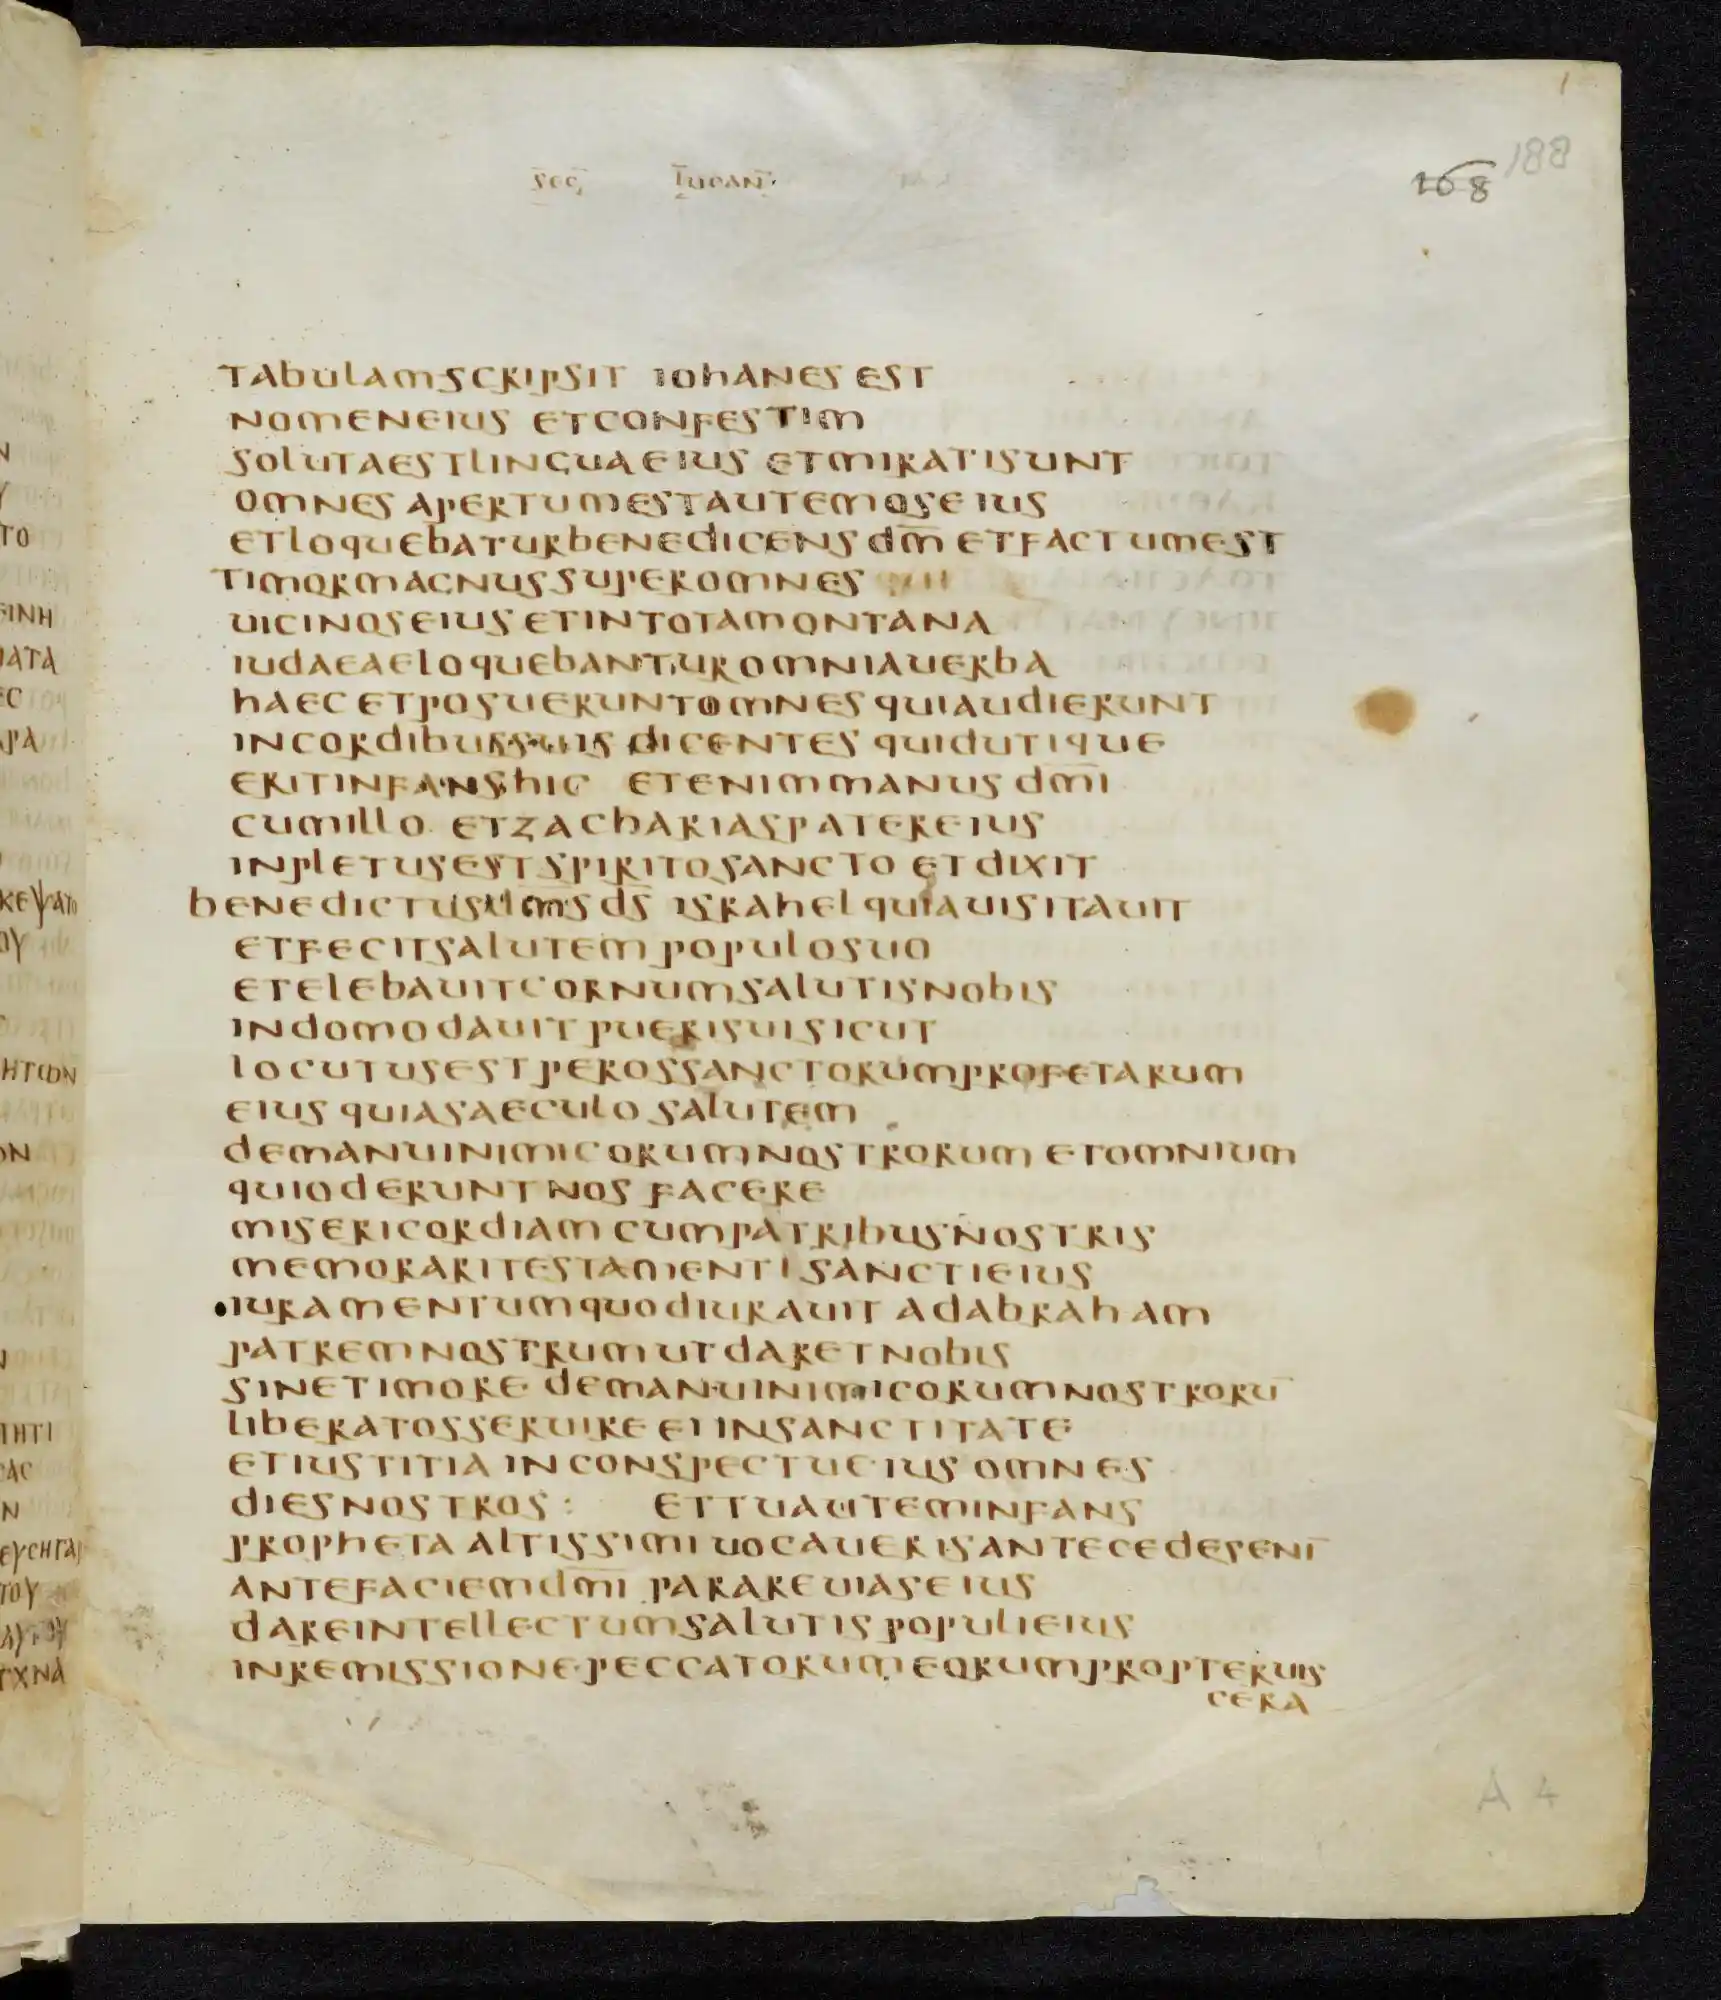 sec̄ lucan̄
168 188
tabulam scripsit iohanes est
nomen eius et confestim
soluta est lingua eius et mirati sunt
omnes apertum est autem os eius
et loquebatur benedicens dm̄ et factum est
timor magnus super omnes
uicinos eius et in tota montana
iudaeae loquebantur omnia uerba
haec et posuerunt omnes qui audierunt
in cordibus suis dicentes quid utique
erit infans hic etenim manus dmī
cum illo et zacharias pater eius
inpletus est spirito sancto et dixit
benedictus dm̄s ds̄ israhel quia uisitauit
et fecit salutem populo suo
et elebauit cornum salutis nobis
in domo dauit pueri sui sicut
locutus est per os sanctorum profetarum
eius quia saeculo salutem
de manu inimicorum nostrorum et omnium
qui oderunt nos facere
misericordiam cum patribus nostris
memorari testamenti sancti eius
iuramentum quod iurauit ad abraham
patrem nostrum ut daret nobis
sine timore de manu inimicorum nostrorū
liberatos seruire ei in sanctitate
et iustitia in conspectu eius omnes
dies nostros : et tu autem infans
propheta altissimi uocaueris antecedes enī
ante faciem dmī parare uias eius
dare intellectum salutis populi eius
in remissione peccatorum eorum propter uis
cera
A 4